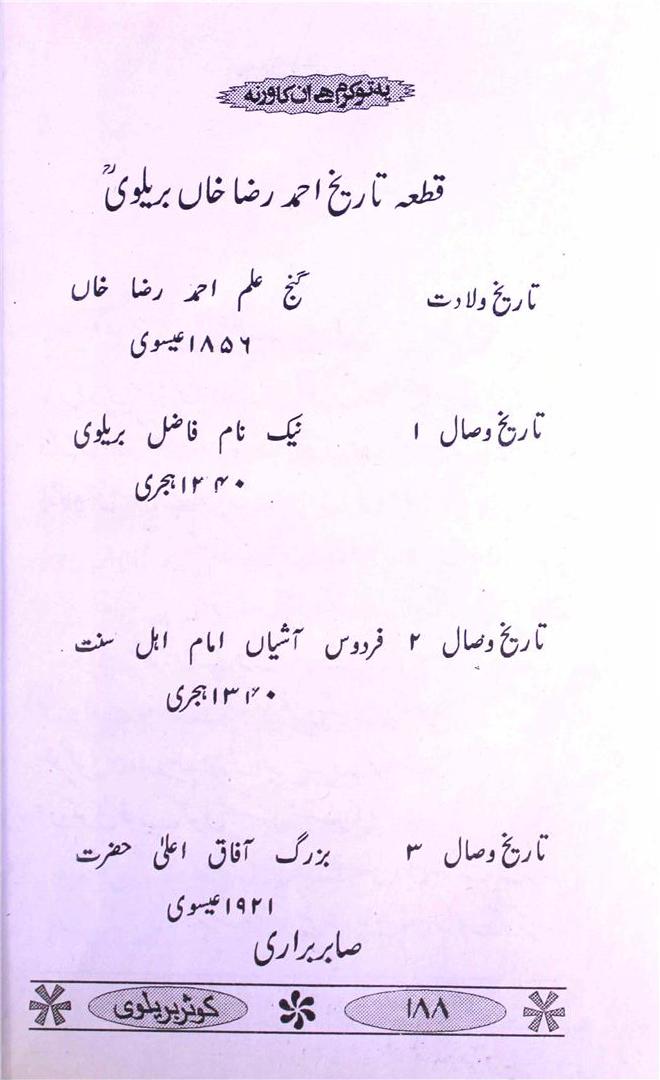 یہ تو کرم ہے ان کا ورنہ
قطعہ تاریخ احمد رضا خاں بریلویؒ
تاریخ ولادت گنج علم احمد رضا خاں
۱۸۵۶ عیسوی
تاریخ وصال ۱ نیک نام فاضل بریلوی
۱۲۴۰ ہجری
تاریخ وصال ۲ فردوس آشیاں امام اہل سنت
۱۳۴۰ ہجری
تاریخ وصال ۳ بزرگ آفاق اعلیٰ حضرت
۱۹۲۱ عیسوی
صابر براری
۱۸۸ کوثر بریلوی